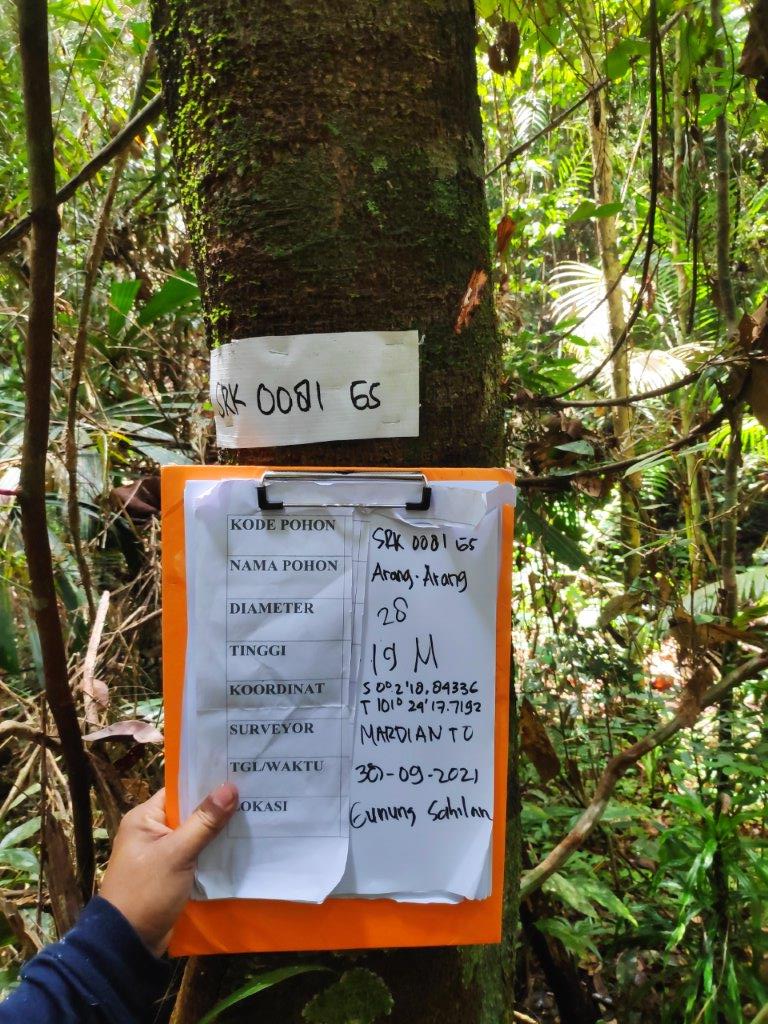 SRK 0081 GS
KODE POHON SRK 0081 GS
NAMA POHON Arang-Arang
DIAMETER 28
TINGGI 19 M
KOORDINAT S 0° 2' 18.84336
T 101° 24' 17.7192
SURVEYOR MARDIANTO
TGL/WAKTU 30-09-2021
LOKASI Gunung Sahilan